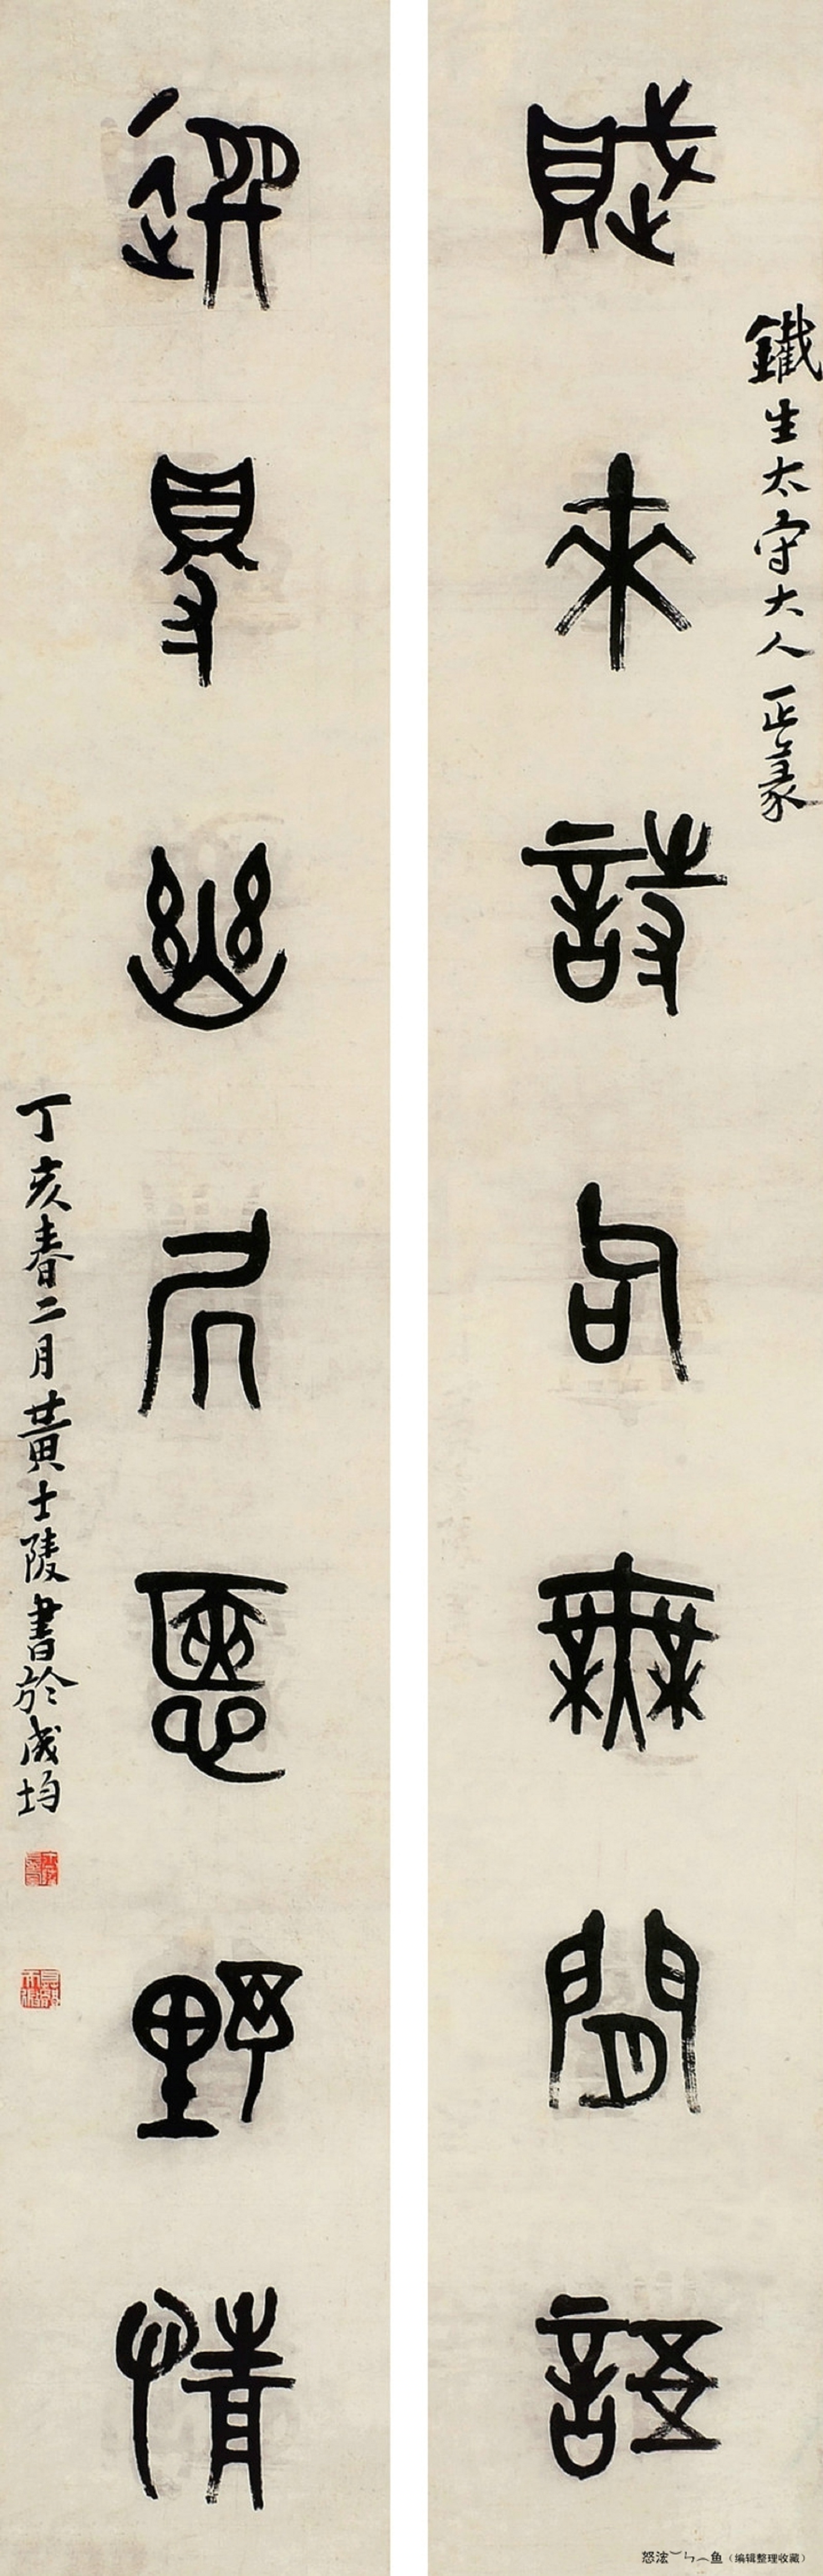 鐵生太守大人正篆
賦來詩句無閒語
選得幽居愜野情
丁亥春二月黃士陵書於成均
怒浤︶ㄣ︵鱼（编辑整理收藏）